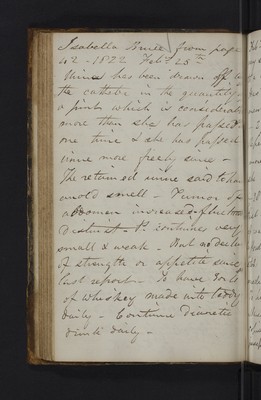 Isabella from page
42 - 1822 Feby 25th
Urine has been drawn off by
the catheter in the quantity of
a pint which is considerably
more than she has passed at
one time & she has passed
urine more freely since -
The retained urine said to have
smell - Tumor of
abdomen increased & fluctuation
Distinct - P continues very
small & weak - But no decline
of strength or appetite since
last report - To have
of whiskey made into toddy
daily - Continue Diuretic
daily -